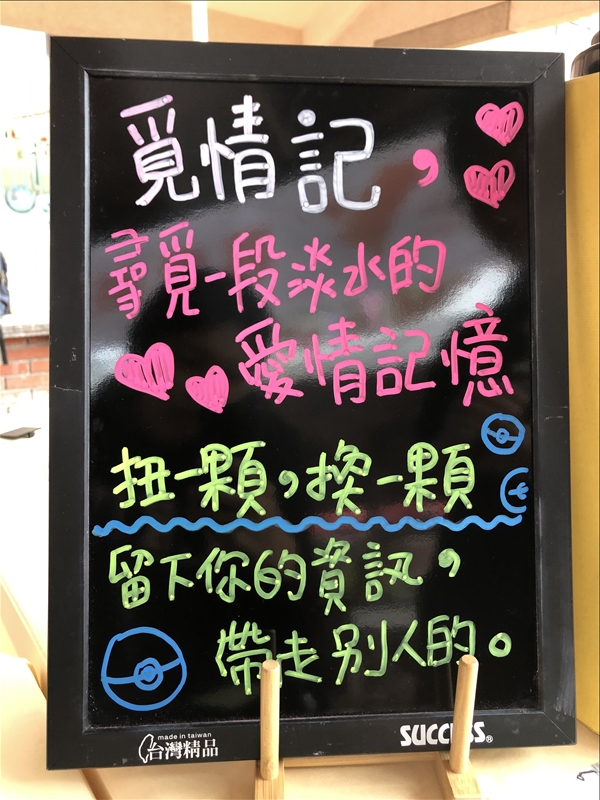 覓情記，
尋覓一段淡水的
愛情記憶
扭一顆，換一顆
留下你的資訊，
帶走別人的。
made in taiwan
台灣精品
SUCCESS®